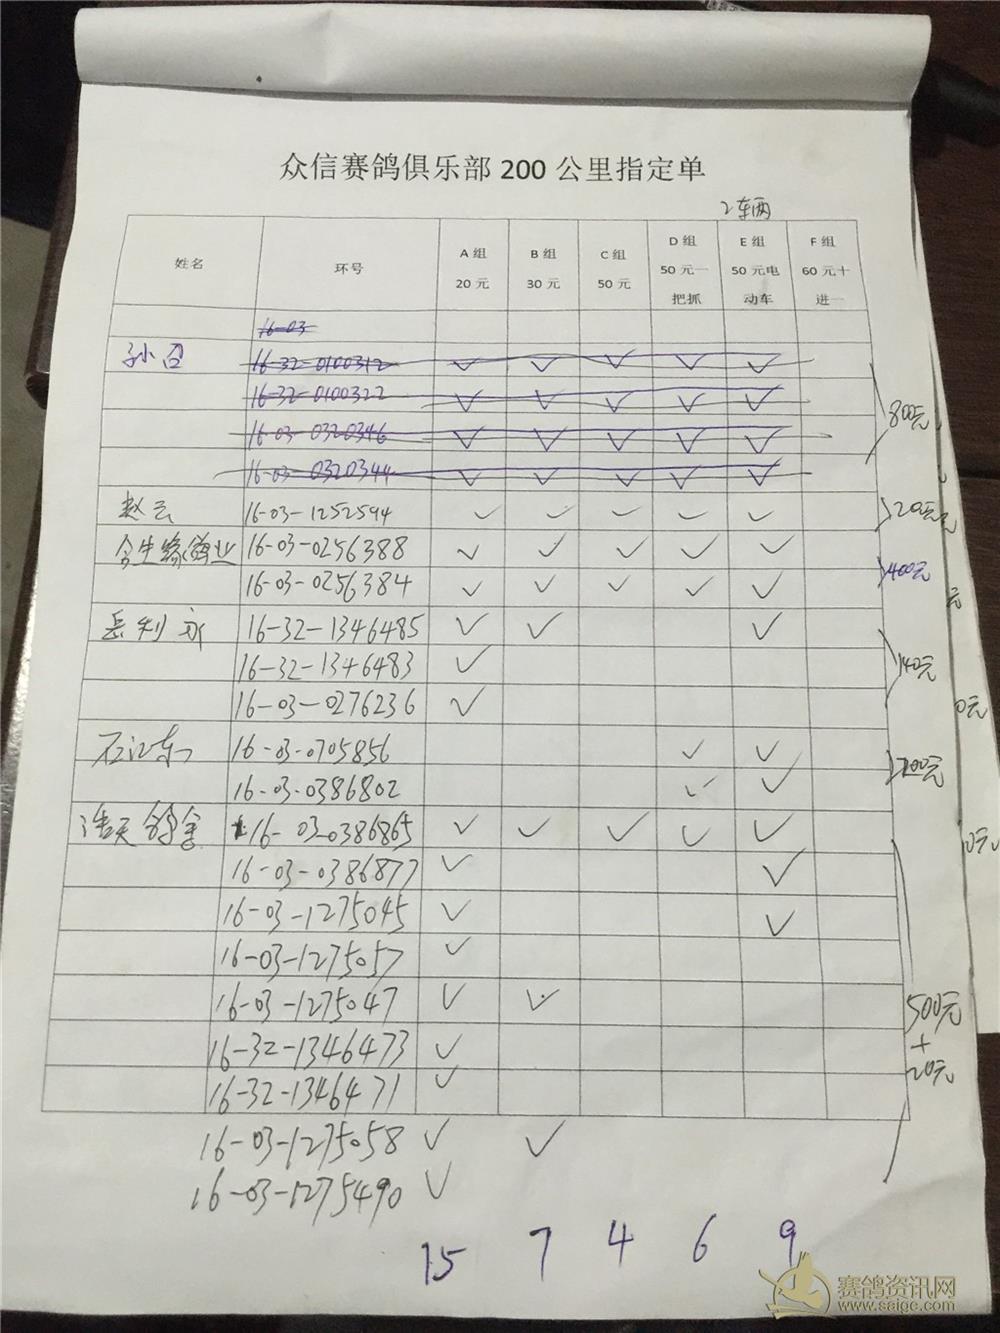 众信赛鸽俱乐部 200 公里指定单
2车两
姓名 环号 A 组 20 元 B 组 30 元 C 组 50 元 D 组 50 元一把抓 E 组 50 元电动车 F 组 60 元十进一
16-03
孙召 16-32-0100312 ✓ ✓ ✓ ✓ ✓
16-32-0100322 ✓ ✓ ✓ ✓ ✓
800元
16-03-0320346 ✓ ✓ ✓ ✓ ✓
16-03-0320344 ✓ ✓ ✓ ✓ ✓
赵云 16-03-1252594 ✓ ✓ ✓ ✓ ✓ 200元
今生缘鸽业 16-03-0256388 ✓ ✓ ✓ ✓ ✓
400元
16-03-0256384 ✓ ✓ ✓ ✓ ✓
岳利永 16-32-1346485 ✓ ✓ ✓
16-32-1346483 ✓ 140元
16-03-0276236 ✓
石江东 16-03-0705856 ✓ ✓
200元
16-03-0386802 ✓ ✓
浩天鸽舍 16-03-0386865 ✓ ✓ ✓ ✓ ✓
16-03-0386877 ✓ ✓
16-03-1275045 ✓ ✓
16-03-1275057 ✓
16-03-1275047 ✓ ✓ 500元
+
16-32-1346473 ✓ 20元
16-32-1346471 ✓
16-03-1275058 ✓ ✓
16-03-1275490 ✓
15 7 4 6 9
赛鸽资讯网
www.saige.com